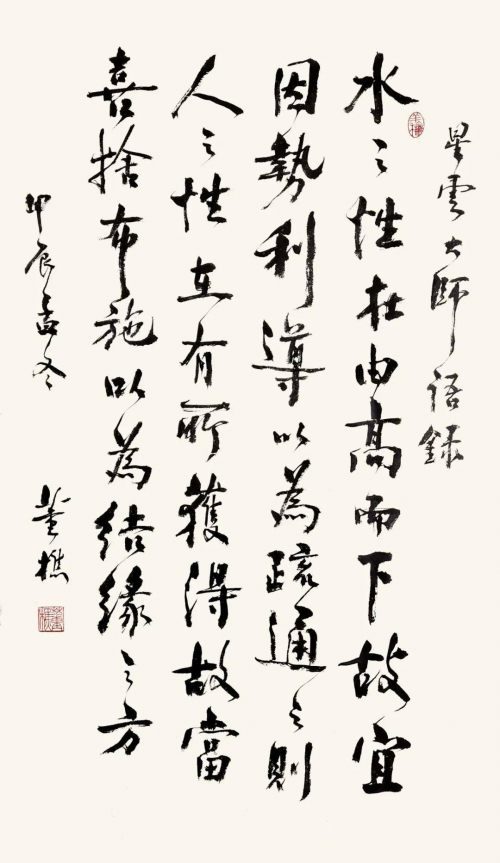 星雲大師語錄
水之性在由高而下故宜
因勢利導以為疏通之則
人之性在有所獲得故當
喜捨布施以為結緣之方
甲辰孟冬
董樵